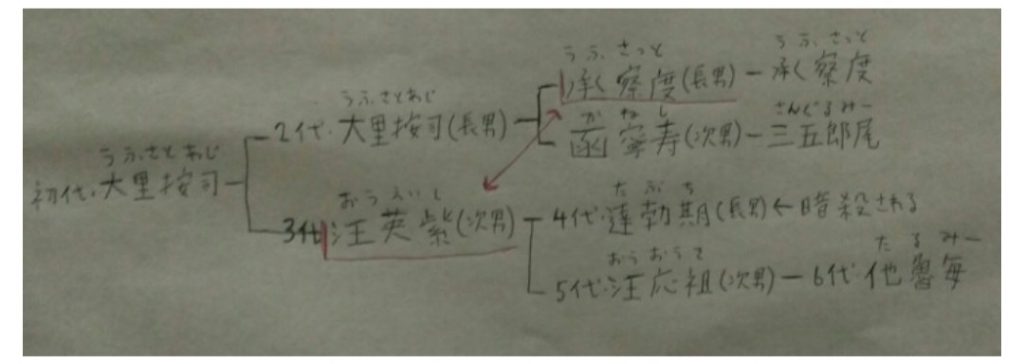 うふ さっと
うふ さっと
承く察度(長男) - 承く察度
うふさとあじ
2代・大里按司(長男)
かねし
さんぐるみー
函寧寿(次男) - 三五郎尾
うふさとあじ
初代・大里按司
おうえいし
3代汪英紫(次男)
たぶち
4代・達勃期(長男) ← 暗殺される
おうおうそ
たるみー
5代・汪応祖(次男) - 6代・他魯毎